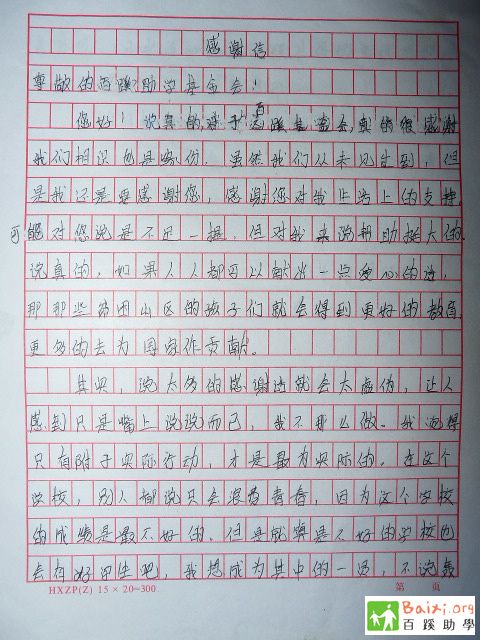 感谢信
尊敬的百蹊助学基金会!
您好!说真的对于百蹊基金会,真的很感谢
我们相识也是缘份。虽然我们从未见生到,但
是我还是要感谢您,感谢您对我生活上的支持,
可能对您说是不足一提,但对我来说帮助挺大的。
说真的,如果人人都可以献出一点爱心的话,
那那些贫困山区的孩子们就会得到更好的教育,
更多的去为国家作贡献。
其实,说太多的感谢话就会太虚伪,让人
感到只是嘴上说说而已,我不那么做。我觉得
只有附于实际行动,才是最为实际的。在这个
学校,别人都说只会浪费青春,因为这个学校
的成绩是最不好的。但是就算是不好的学校也
会有好学生吧,我想成为其中的一员,不说最
HXZP(Z) 15×20=300
第 页
Baixi.org
百蹊助學